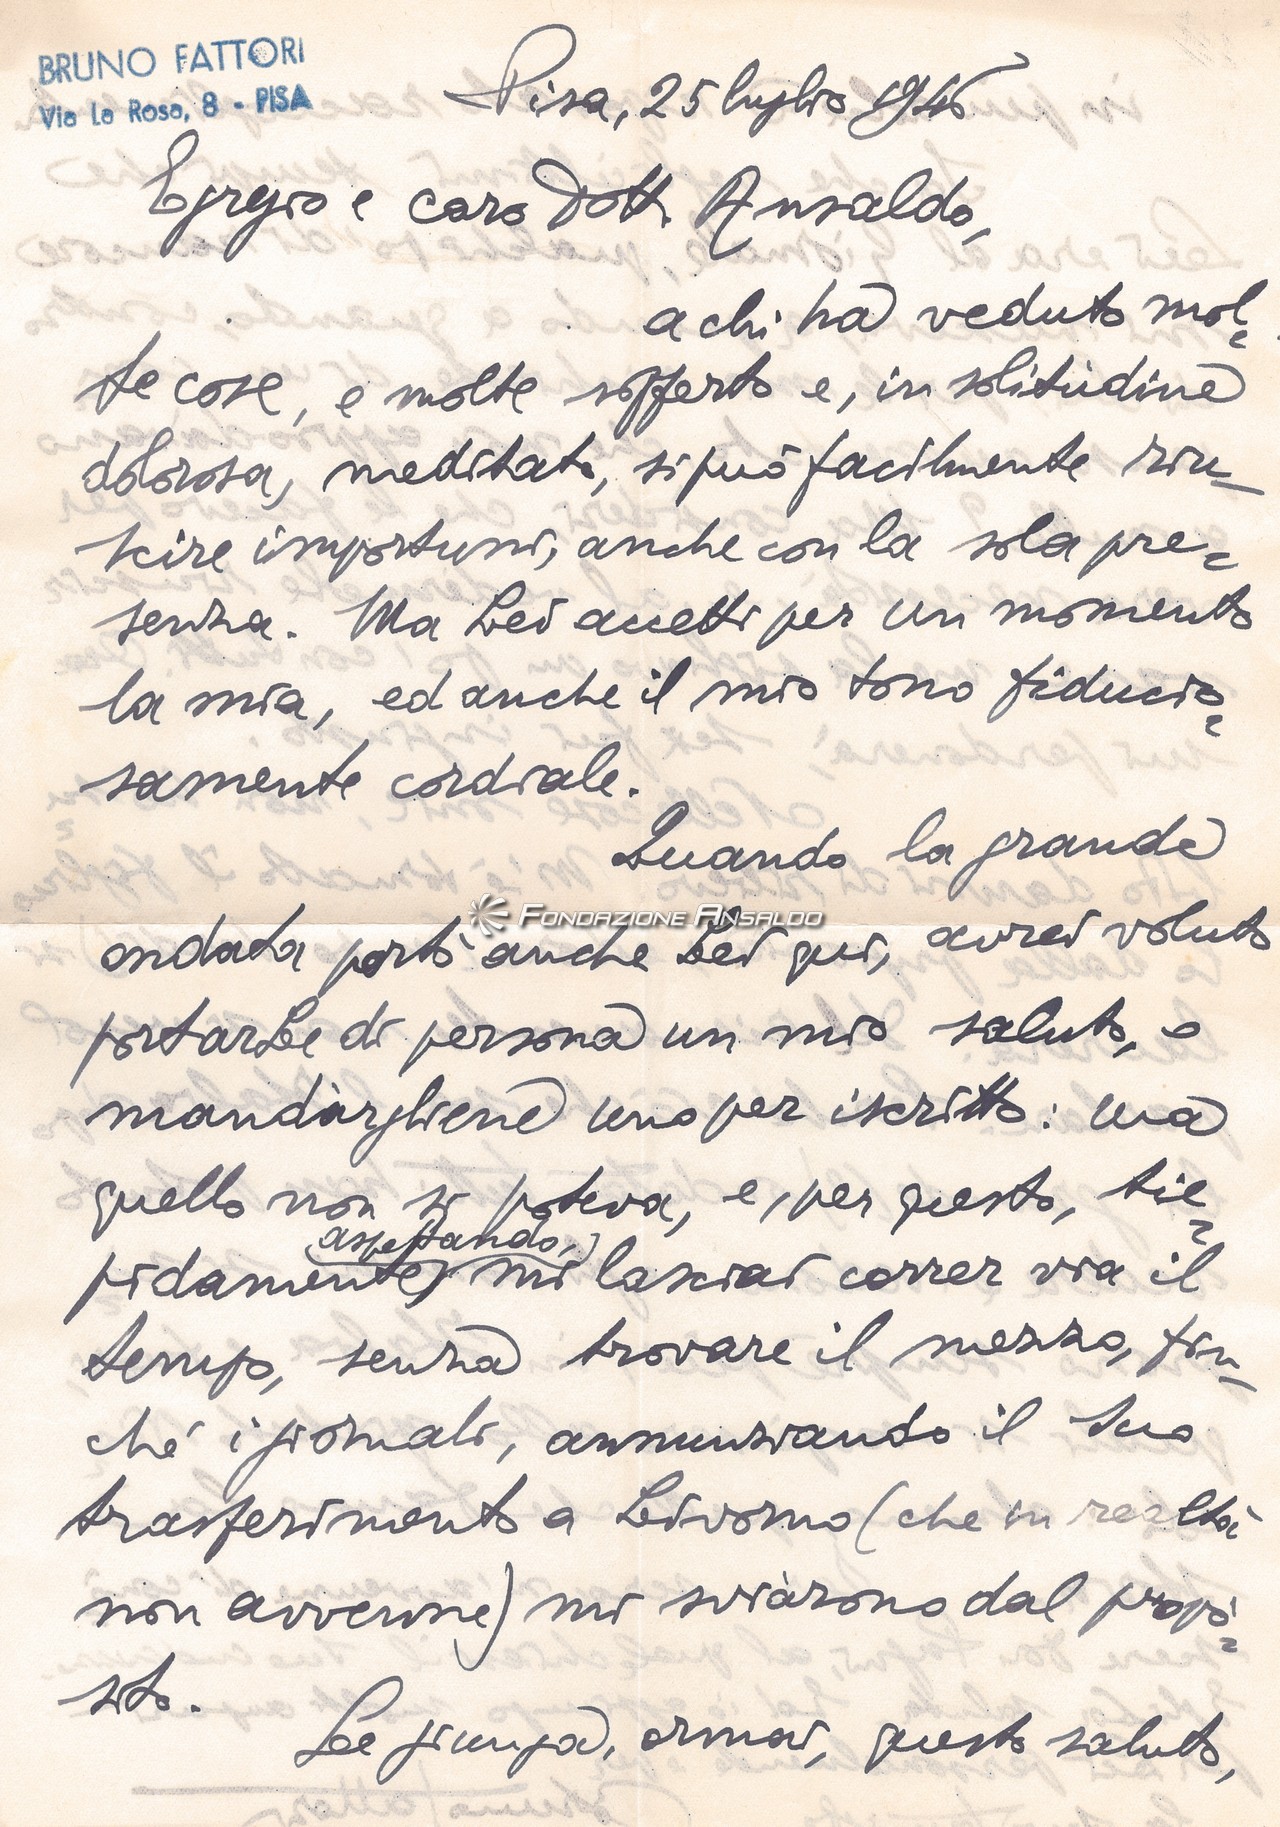 BRUNO FATTORI
Via La Rosa, 8 - PISA
Pisa, 25 luglio 1946
Egregio e caro Dott. Ansaldo,
a chi ha veduto mol=
te cose, e molte sofferto e, in solitùdine
dolorosa, meditato, si può facilmente riu-
scire importuni, anche con la sola pre=
senza. Ma Lei accetti per un momento
la mia, ed anche il mio tono fiducio=
samente cordiale.
Quando la grande
FONDAZIONE ANSALDO
ondata portò anche Lei qui, avrei voluto
portarLe di persona un mio saluto, o
mandàrgliene uno per iscritto: ma
quello non si poteva, e, per questo, tie=
aspettando,
pidamente mi lasciai correr via il
tempo, senza trovare il mezzo, fin-
ché i giornali, annunziando il Suo
trasferimento a Livorno (che in realtà
non avvenne) mi sviàrono dal propò=
sito.
Le giunga, ormai, questo saluto,